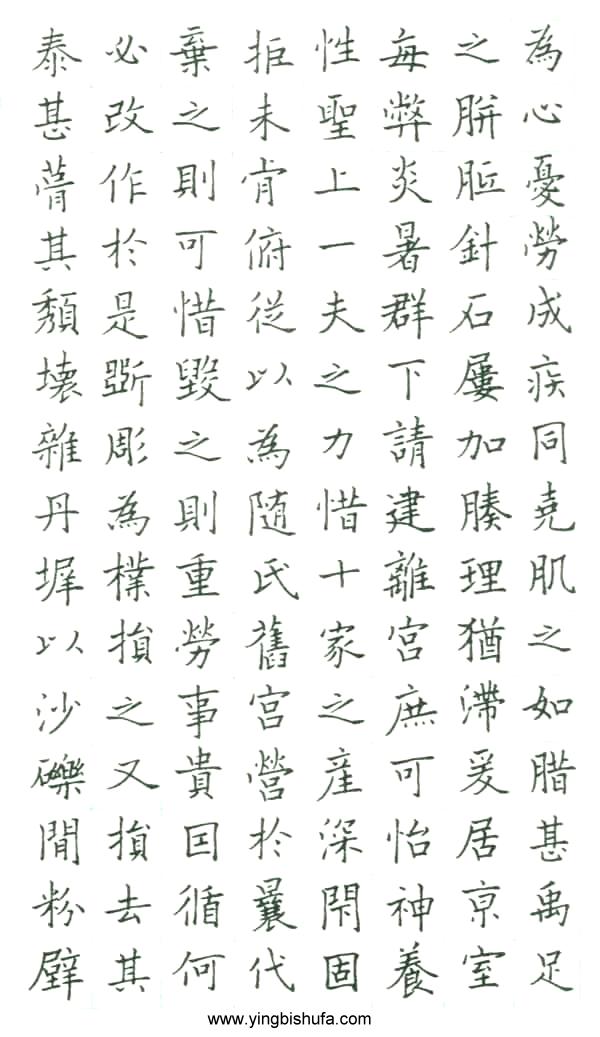 為心憂勞成疾同堯肌之如腊甚禹足
之胼胝針石屢加腠理猶滯爰居京室
每弊炎暑群下請建離宮庶可怡神養
性聖上一夫之力惜十家之産深閇固
拒未肯俯從以為随氏舊宮營於曩代
棄之則可惜毀之則重勞事貴因循何
必改作於是斲彫為樸損之又損去其
泰甚葺其頹壞雜丹墀以沙礫間粉壁
www.yingbishufa.com